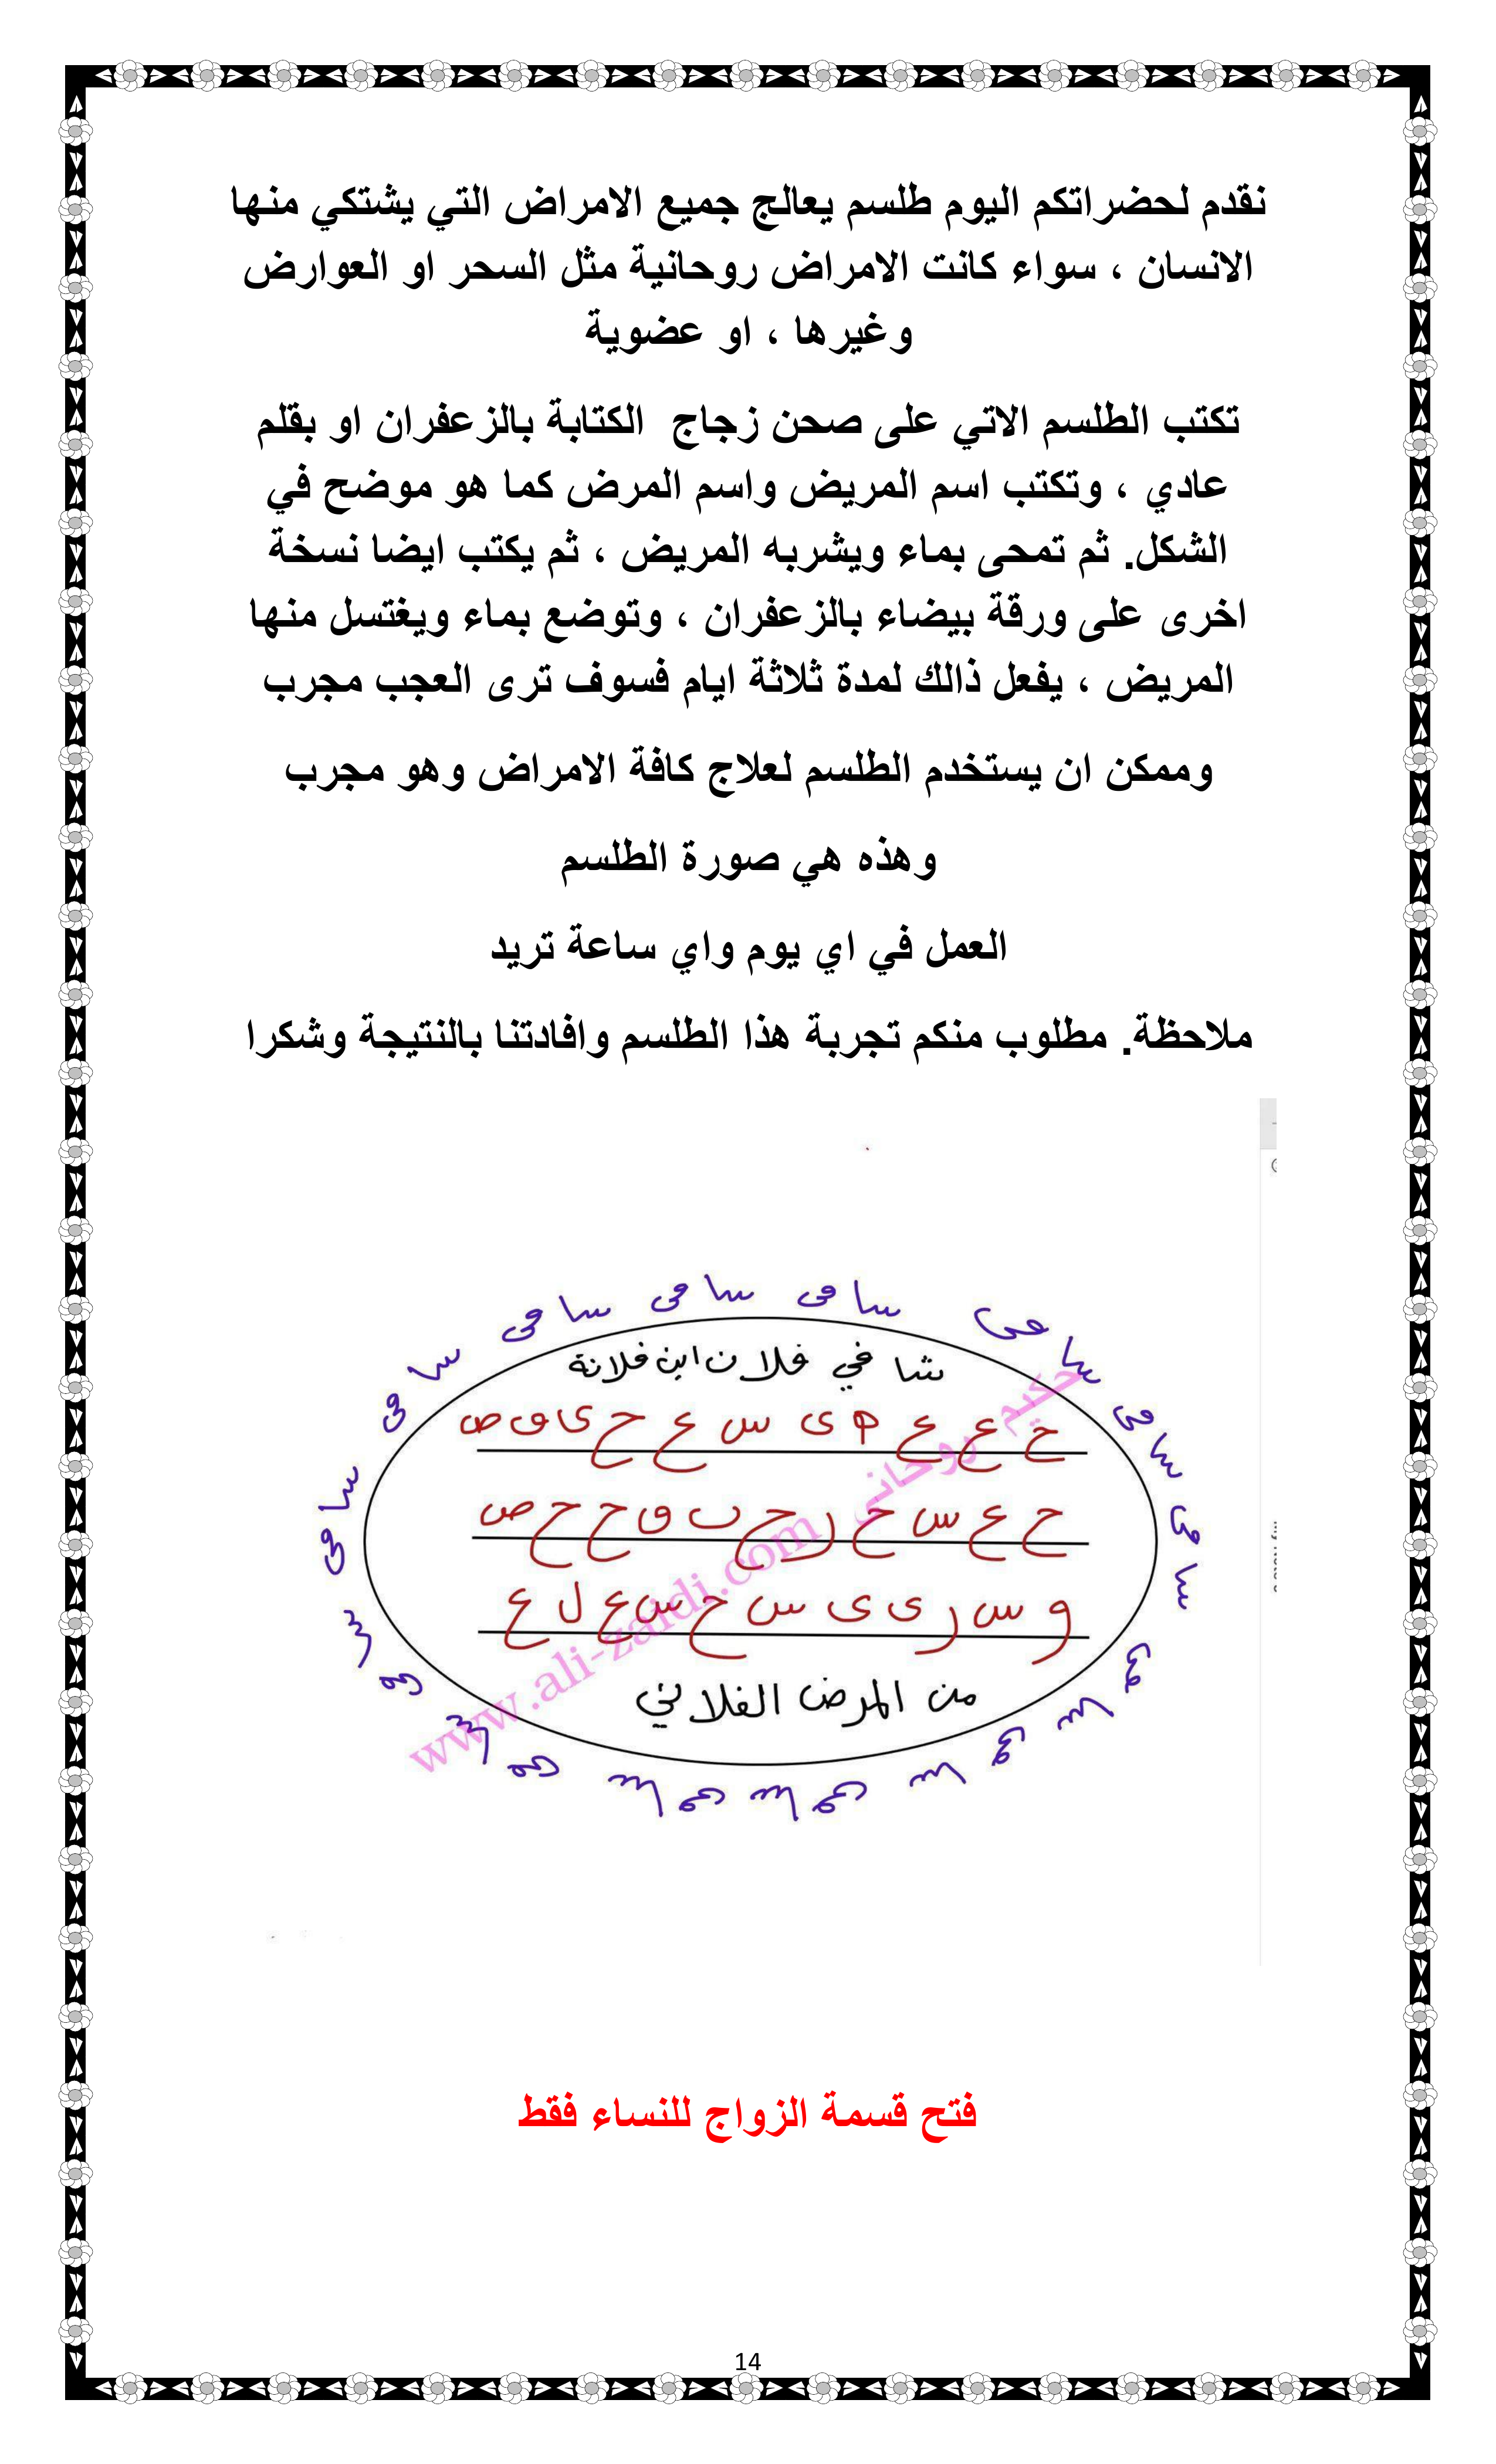 نقدم لحضراتكم اليوم طلسم يعالج جميع الامراض التي يشتكي منها
الانسان ، سواء كانت الامراض روحانية مثل السحر او العوارض
وغيرها ، او عضوية
تكتب الطلسم الاتي على صحن زجاج الكتابة بالزعفران او بقلم
عادي ، وتكتب اسم المريض واسم المرض كما هو موضح في
الشكل. ثم تمحى بماء ويشربه المريض ، ثم يكتب ايضا نسخة
اخرى على ورقة بيضاء بالزعفران ، وتوضع بماء ويغتسل منها
المريض ، يفعل ذالك لمدة ثلاثة ايام فسوف ترى العجب مجرب
وممكن ان يستخدم الطلسم لعلاج كافة الامراض وهو مجرب
وهذه هي صورة الطلسم
العمل في اي يوم واي ساعة تريد
ملاحظة. مطلوب منكم تجربة هذا الطلسم وافادتنا بالنتيجة وشكرا
شافي فلان ابن فلانة
ح ع س ح ر ح ب ق ح ح ص
و س ر ى ى س ح س ع ل ع
من المرض الفلاني
حكيم روحاني www.ali-zaidi.com
فتح قسمة الزواج للنساء فقط
14